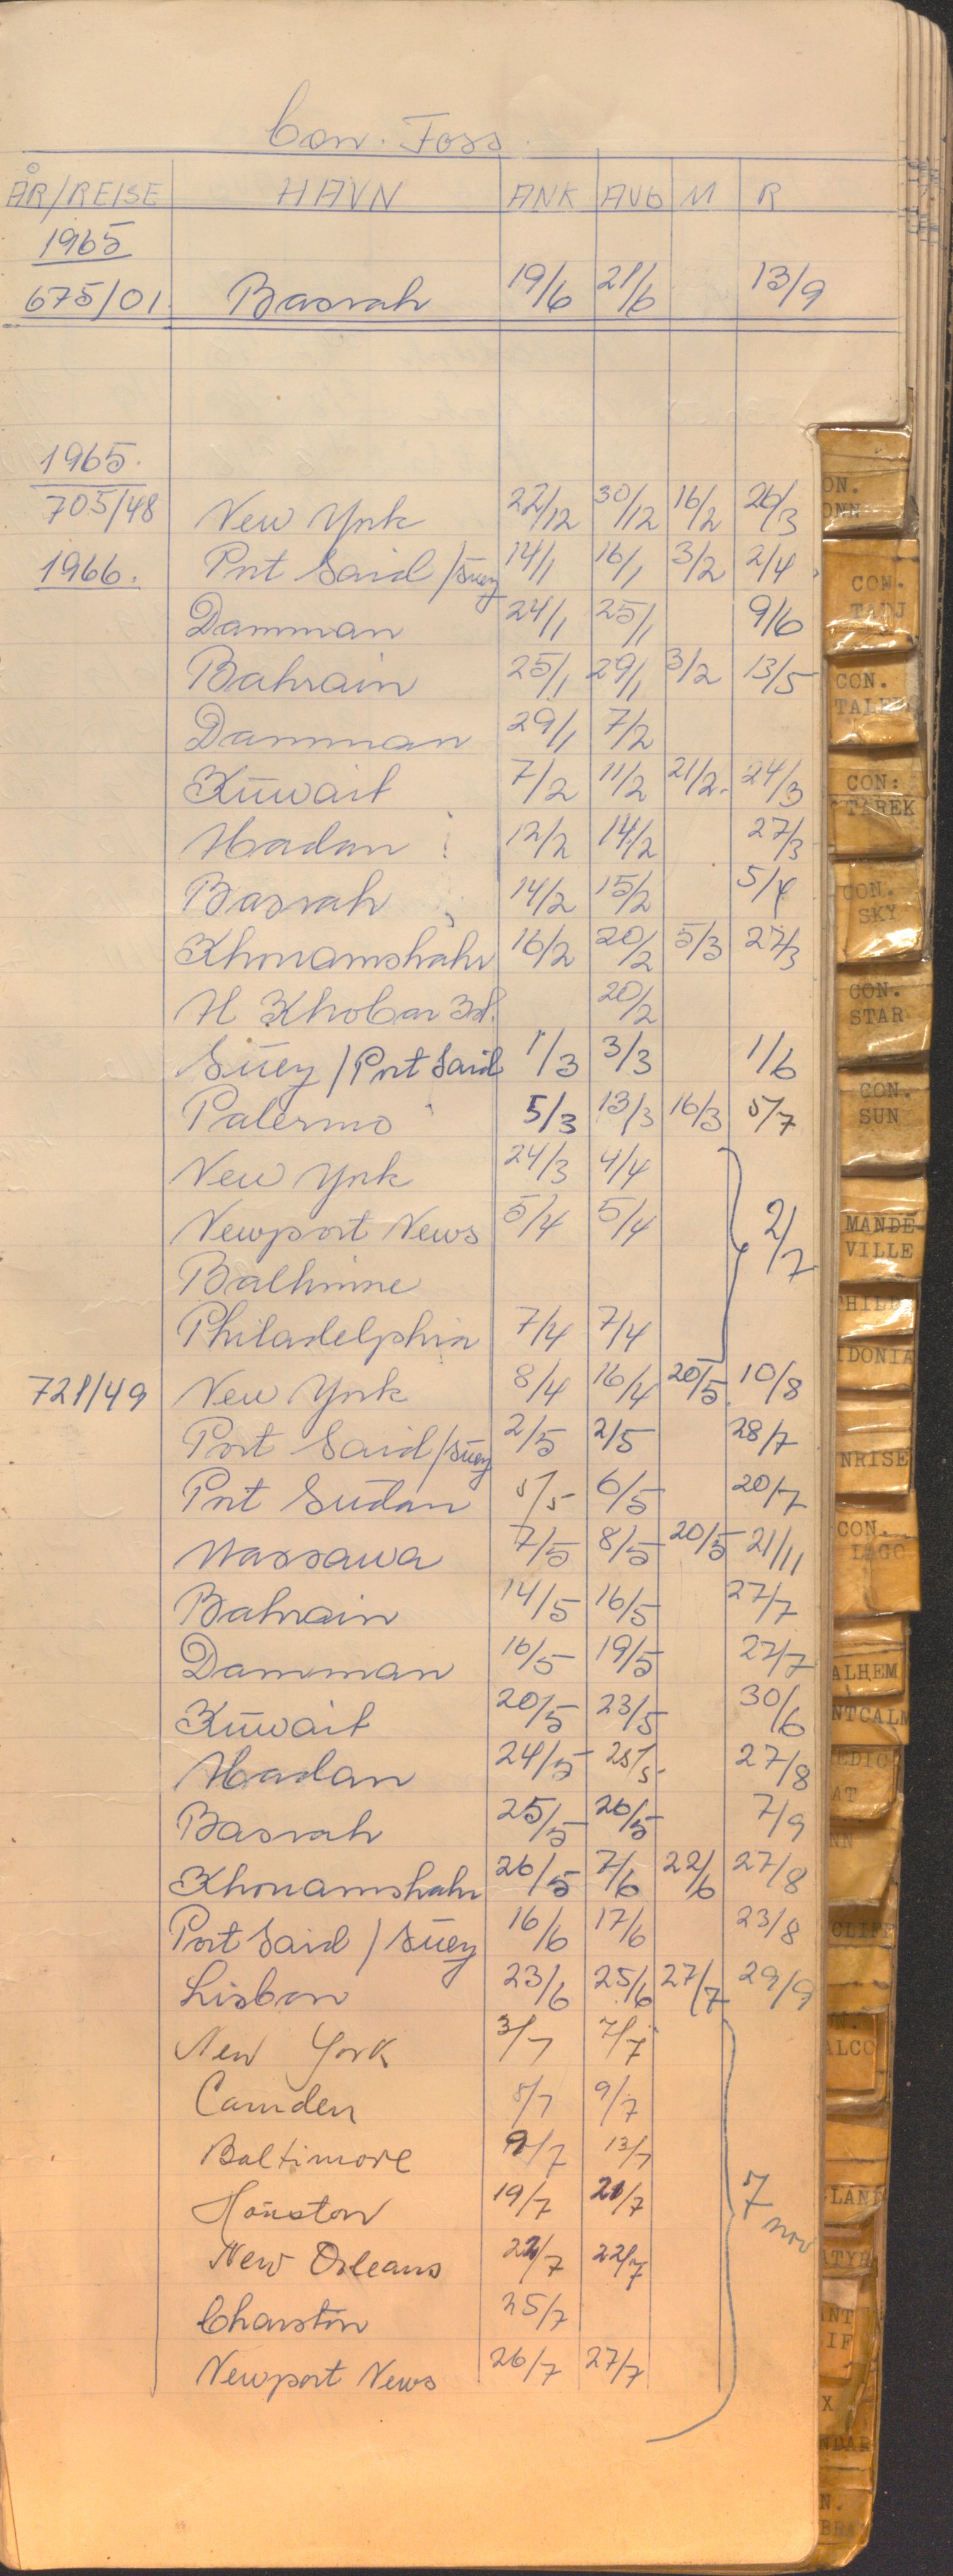 Con. Foss.
ÅR/REISE HAVN ANK AVG M R
1965
675/01 Basrah 19/6 21/6 13/9
1965.
705/48 New York 22/12 30/12 16/2 26/3
1966. Port Said/Suez 14/1 16/1 3/2 2/4
Damman 24/1 25/1 9/6
Bahrain 25/1 29/1 3/2 13/5
Damman 29/1 7/2
Kūwait 7/2 11/2 21/2. 24/3
Abadan 12/2 14/2 27/3
Basrah 14/2 15/2 5/4
Khoramshahr 16/2 20/2 5/3 27/3
Al Khobar 20/2
Sūez/Port Said 1/3 3/3 1/6
Palermo 5/3 13/3 16/3 5/7
New York 24/3 4/4
Newport News 5/4 5/4 2/7
Baltimore
Philadelphia 7/4 7/4
721/49 New York 8/4 16/4 20/5 10/8
Port Said/Sūez 2/5 2/5 28/7
Port Sūdan 5/5 6/5 20/7
Massawa 7/5 8/5 20/5 21/11
Bahrain 14/5 16/5 27/7
Damman 16/5 19/5 27/7
Kūwait 20/5 23/5 30/6
Abadan 24/5 25/5 27/8
Basrah 25/5 26/5 7/9
Khoramshahr 26/5 7/6 22/6 27/8
Port Said/Sūez 16/6 17/6 23/8
Lisbon 23/6 25/6 27/7 29/9
New York 3/7 7/7
Camden 8/7 9/7
Baltimore 9/7 13/7
Hoūston 19/7 21/7 7 nov
New Orleans 22/7 22/7
Charston 25/7
Newport News 26/7 27/7
ON.
ONN
CON.
TADJ
CON.
TALE
CON:
TAREK
CON.
SKY
CON.
STAR
CON.
SUN
MANDE
VILLE
PHIL
IDONIA
NRISE
CON.
LAGO
ALHEM
NTCALM
EDIC
AT
NN
CLIFF
N.
ALCO
LAND
ATYR
ANT
IF
X
NDAR
N.